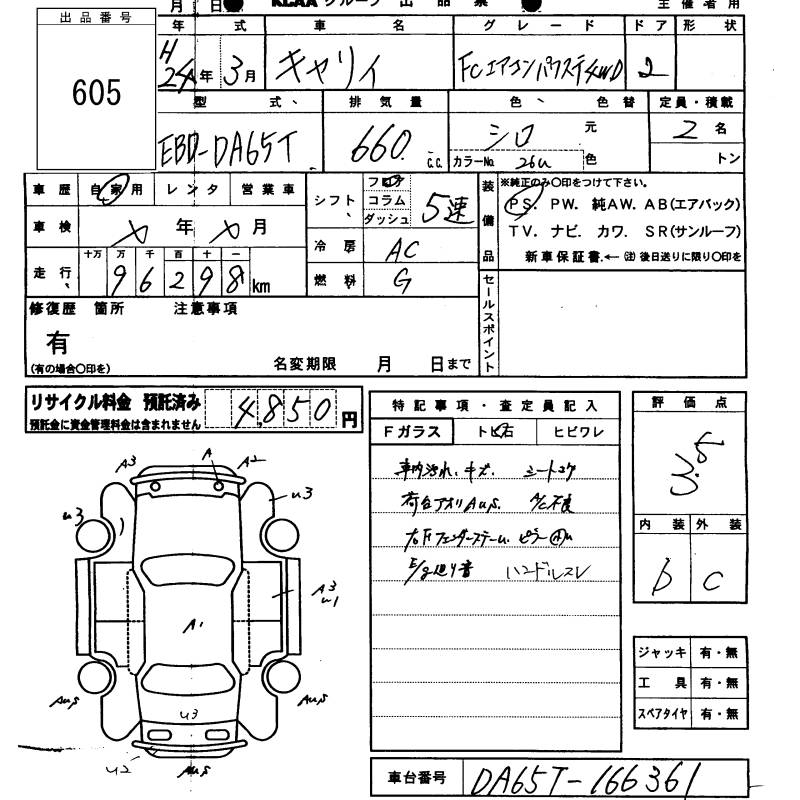 月 日 KCAA グループ 出 品 票 主 催 者 用
出 品 番 号
605
年 式 車 名 グ レ ー ド ド ア 形 状
H24年 3月 キャリィ FCエアコンパワステ4WD 2
型 式 排 気 量 色 色 替 定員・積載
EBD-DA65T 660 c.c. シロ 元 2 名
カラーNo. 26U 色 トン
車 歴 自 家 用 レ ン タ 営 業 車
車 検 メ 年 メ 月
十万 万 千 百 十 一
走 行 9 6 2 9 8 km
シフト フロア コラム ダッシュ 5速
冷 房 AC
燃 料 G
装 備 品
※純正のみ〇印をつけて下さい。
PS. PW. 純AW. AB(エアバック)
TV. ナビ. カワ. SR(サンルーフ)
新 車 保 証 書 ←㊟ 後日送りに限り〇印を
修復歴 箇所 注意事項
有
(有の場合〇印を)
名変期限 月 日まで
セールスポイント
リサイクル料金 預託済み 4,850 円
預託金に資金管理料金は含まれません
特 記 事 項 ・ 査 定 員 記 入
Fガラス トビ石 ヒビワレ
車内汚れ、キズ シートコゲ
荷台アオリAUS. A/C不良
右FフェンダーステーU. ピラー
E/g廻り音 ハンドルスレ
評 価 点
3.5
内 装 外 装
b C
ジャッキ 有・無
工 具 有・無
スペアタイヤ 有・無
A3 A A2
u3 u3
A3
u1
A1
AuS u3 AuS
u2 AuS
車台番号 DA65T-166361